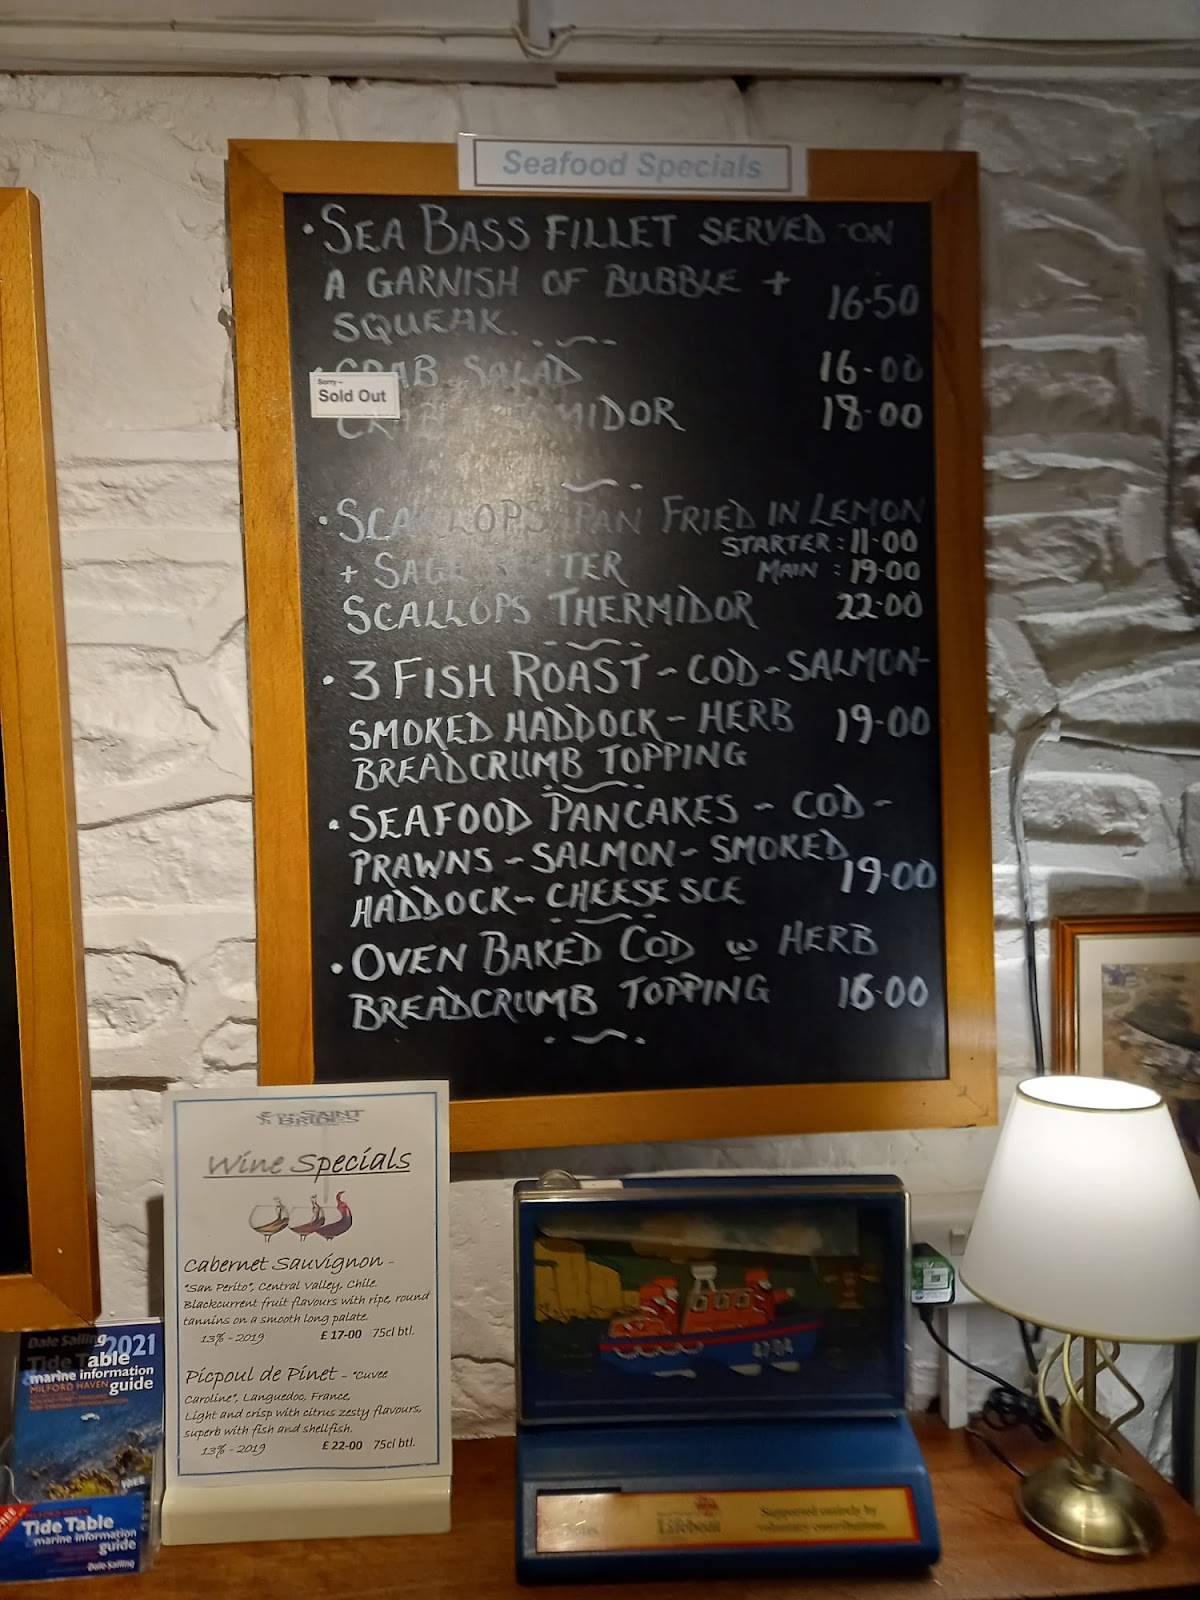 Seafood Specials
• SEA BASS FILLET SERVED ON
A GARNISH OF BUBBLE +
SQUEAK. 16-50
• CRAB SALAD 16-00
Sorry –
Sold Out
CRAB THERMIDOR 18-00
• SCALLOPS PAN FRIED IN LEMON
+ SAGE BUTTER STARTER : 11-00
MAIN : 19-00
SCALLOPS THERMIDOR 22-00
• 3 FISH ROAST - COD - SALMON-
SMOKED HADDOCK - HERB 19-00
BREADCRUMB TOPPING
• SEAFOOD PANCAKES - COD -
PRAWNS - SALMON - SMOKED
HADDOCK - CHEESE SCE 19-00
• OVEN BAKED COD w HERB
BREADCRUMB TOPPING 16-00
SAINT
BRIDES
Wine Specials
Cabernet Sauvignon -
"San Perito", Central Valley, Chile.
Blackcurrent fruit flavours with ripe, round
tannins on a smooth long palate.
13% - 2019 £ 17-00 75cl btl.
Picpoul de Pinet - "Cuvee
Caroline", Languedoc, France.
Light and crisp with citrus zesty flavours,
superb with fish and shellfish.
13% - 2019 £ 22-00 75cl btl.
Dale Sailing
2021
Tide Table
marine information
MILFORD HAVEN guide
FREE
Tide Table
marine information
guide
Dale Sailing
47-04
Notes
Lifeboat
Supported entirely by